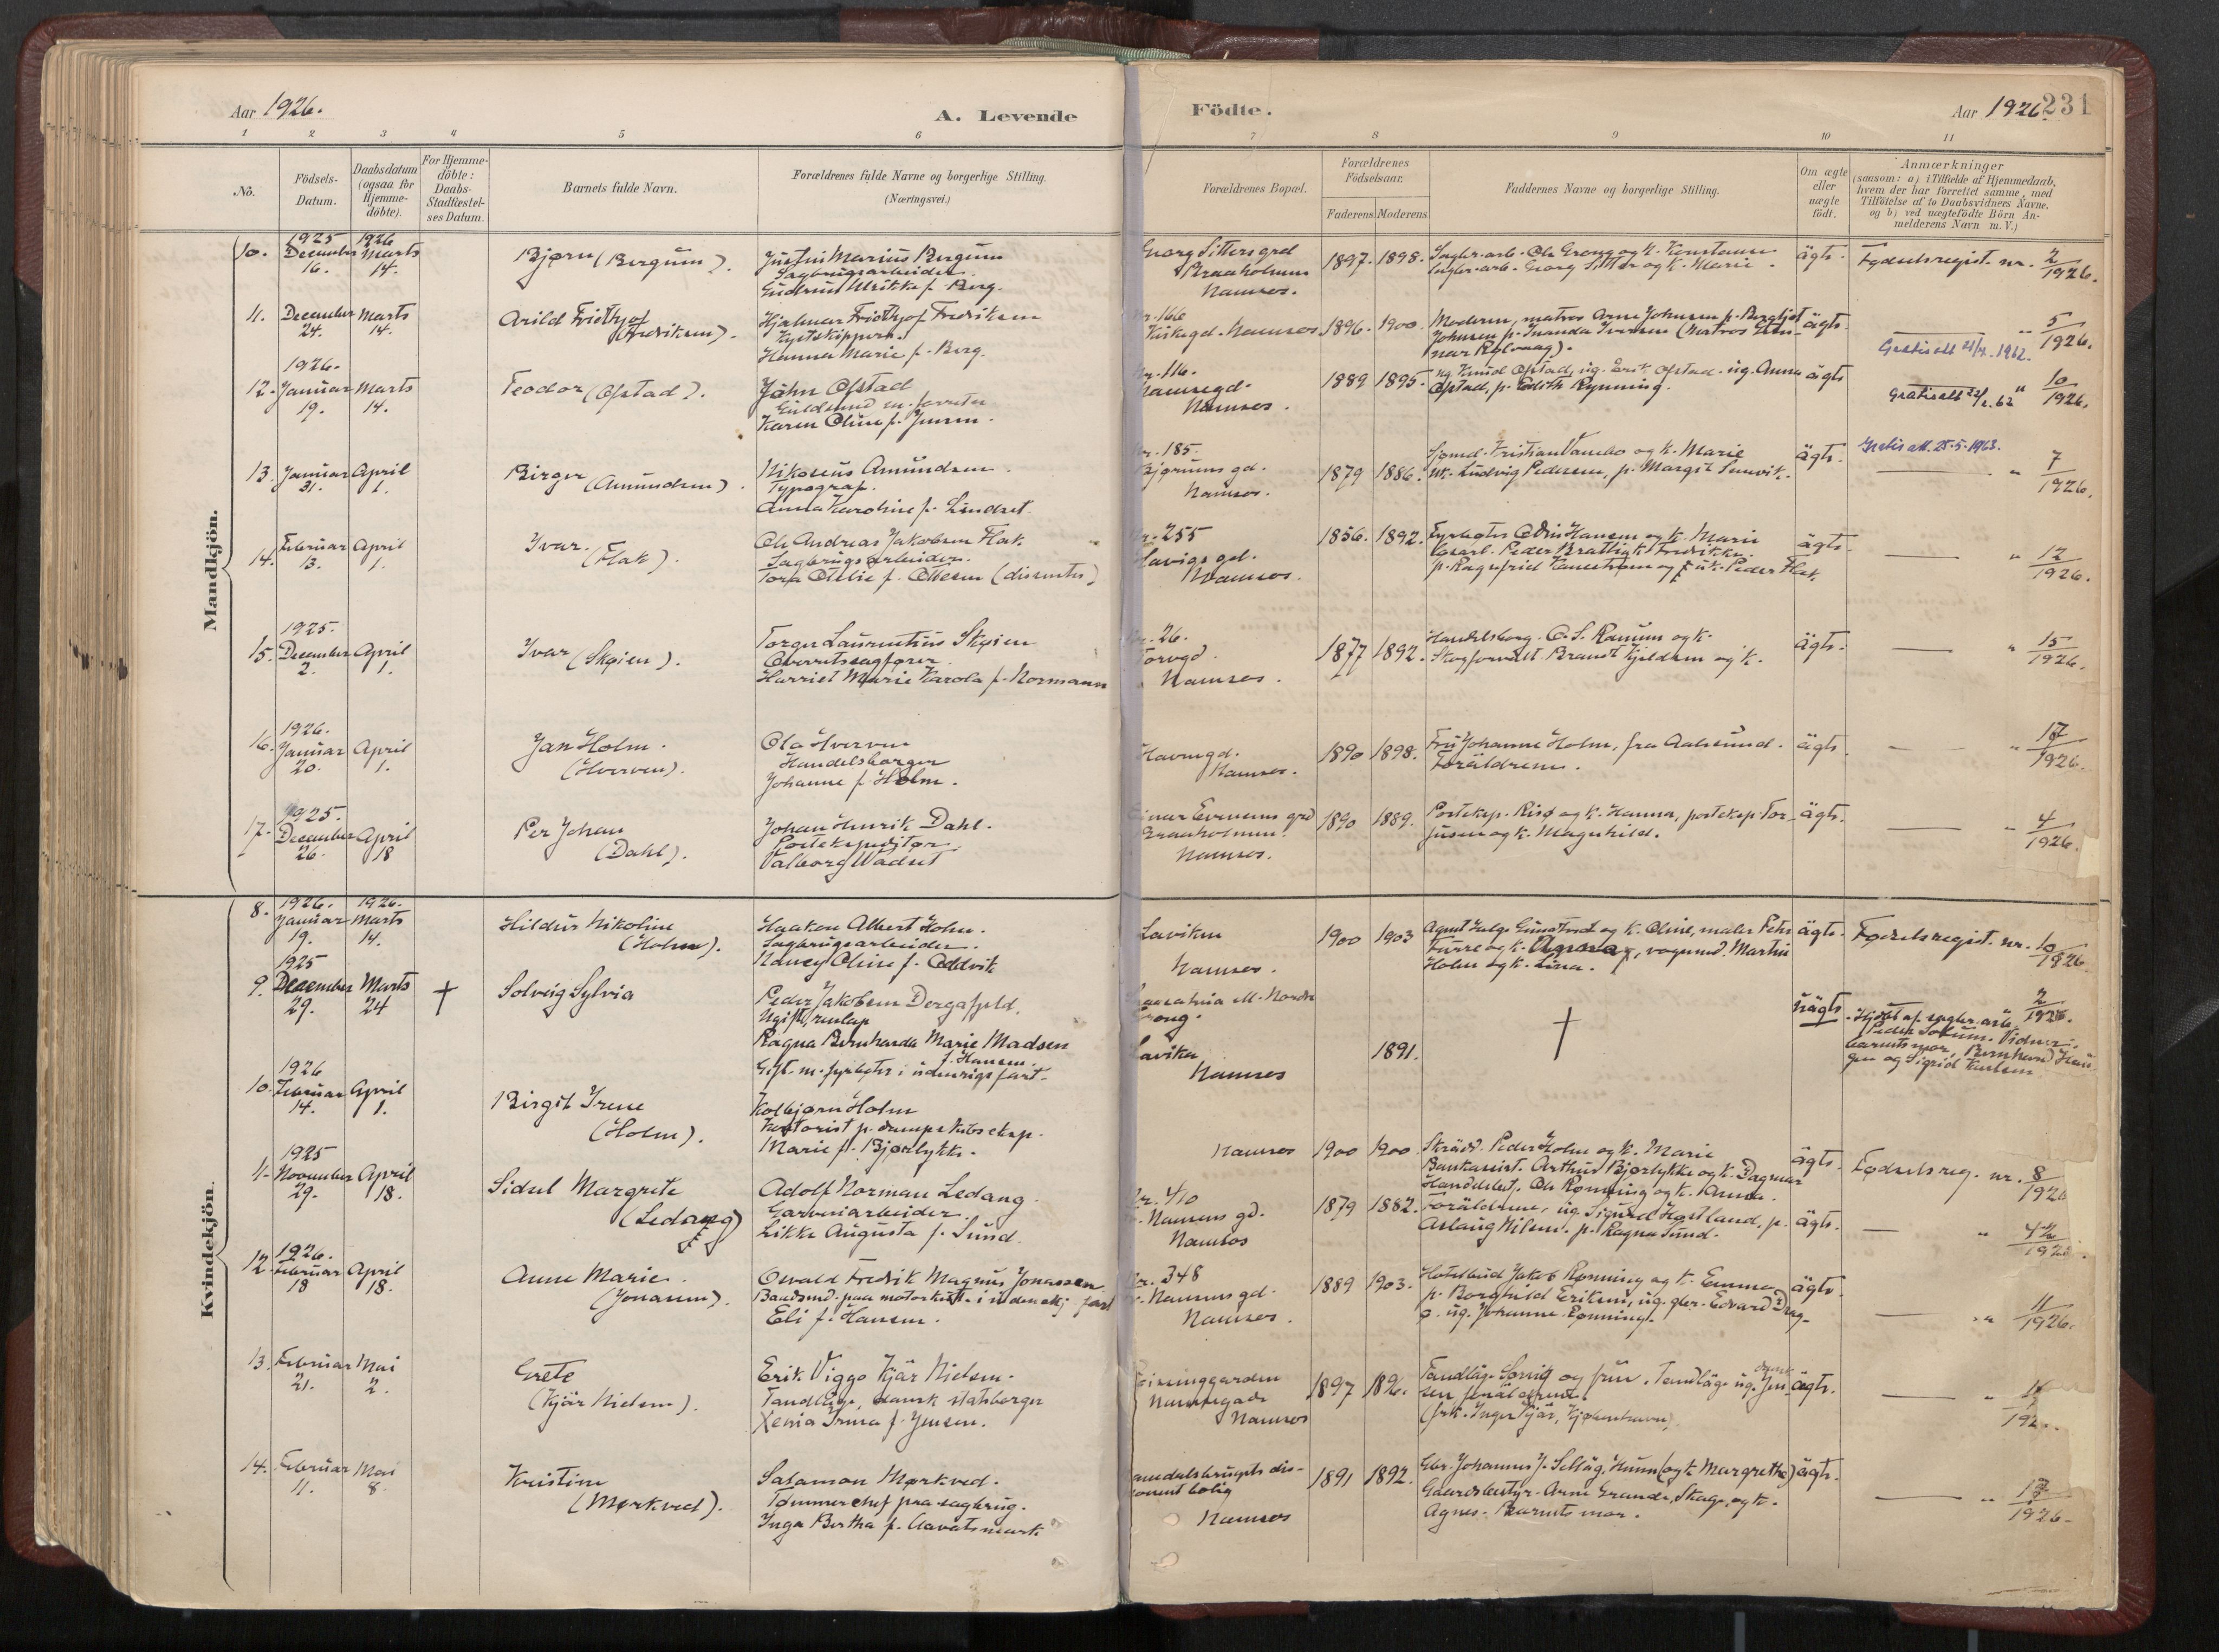 Aar 1926.
A. Levende
Födte.
Aar 1926.
231
1 2 3 4 5 6 7 8 9 10 11
No.
Födsels-Datum.
Daabsdatum (ogsaa for Hjemme-döbte).
For Hjemme-döbte: Daabs-Stadfæstel-ses Datum.
Barnets fulde Navn.
Forældrenes fulde Navne og borgerlige Stilling.
(Næringsvei.)
Forældrenes Bopæl.
Forældrenes Födselsaar.
Faderens Moderens
Faddernes Navne og borgerlige Stilling.
Om ægte eller uægte födt.
Anmærkninger
(saasom: a) i Tilfælde af Hjemmedaab,
hvem der har forrettet samme, med
Tilföielse af to Daabsvidners Navne,
og b) ved uægtefödte Börn An-
melderens Navn m. V.)
Mandkjön.
10. 1925 December 16. 1926 Marts 14.
Bjørn (Bergum).
Justin Marius Bergum
Sagbrugsarbeider.
Gudrun Ulrikke f. Berg.
Georg Sitters grd
Braaholmen
Namsos.
1897. 1898.
Sagbr.arb. Ole Grong og k. Konstanse
Sagbr.arb. Georg Sitter og k. Marie.
ägte.
Fødselsregist. nr. 2/1926.
11. December 24. Marts 14.
Arild Fridthjof
(Fredriksen).
Hjalmar Fridthjof Fredriksen
Kystskipper.
Hanna Marie f. Berg.
Nr. 166
Namsos
1896. 1900.
Moderen, matros Arne Johnsen p. Bergljot
Johnsen p. Ivanda Iversen (Matros
ägte
" 5/1926.
Gratisatt 1962.
12. 1926. Januar 19. Marts 14.
Teodor (Opstad).
John Opstad
Karen Oline f. Jensen.
Nr. 116.
Namsegd.
Namsos.
1889 1895.
ug. Knud Opstad, ug. Erik Opstad. ug. Anna
Opstad, p. Edith Rynning.
ägte
" 10/1926.
Gratisatt
13. Januar 31. April 1.
Birger (Amundsen).
Nikoleus Amundsen.
Typograf.
Anna Karoline f. Lindset.
Nr. 185.
Bjørumsgd.
Namsos.
1879 1886.
Kristian Vambo og k. Marie
uk. Ludvig Pedersen, p. Margit Sunvik.
ägte.
Gratis att. 25-5-1963.
" 7/1926.
14. Februar 13. April 1.
Ivar.
(Flak).
Ole Andreas Jakobsen Flak.
Sagbrugsarbeider.
Tora Otelie f. Ottesen (dissenter)
Nr. 255
Havigs gd.
Namsos.
1856. 1892.
Fyrbøter Odin Hansen og k. Marie
Peder Brattli og k. Fredrikke.
p. Ragnfrid Vannebo og uk. Peder Flak.
ägte.
" 12/1926.
15. 1925. December 2. April 1.
Ivar (Skøien).
Torger Laurentius Skøien
Overretssagfører
Harriet Marie Karola f. Normann
Nr. 26.
Torvgd.
Namsos.
1877 1892.
Handelsborg. O. S. Ranum og k.
Skogforvalt. Brandt Kjeldsen og k.
ägte.
" 15/1926.
16. 1926. Januar 20. April 1.
Jan Holm.
(Hverven).
Ola Hverven
Handelsborger
Johanne f. Holm.
Havnegd.
Namsos.
1890 1898.
Fru Johanne Holm, fra Aalesund.
Foräldrene.
ägte.
" 17/1926.
17. 1925. December 26. April 18
Per Johan
(Dahl).
Johan Henrik Dahl.
Postekspeditør.
Valborg Wadset
Einar Evensens grd
Braaholmen.
Namsos.
1890 1889.
Posteksp. Risø og k. Hanna, posteksp. Tor-
jusen og k. Magnhild.
ägte.
" 4/1926.
Kvindekjön.
8. 1926. Januar 19. 1926. Marts 14.
Hildur Nikoline
(Holm).
Haakon Albert Holm.
Sagbrugsarbeider.
Nancy Oline f. Oddvik
Laviken
Namsos.
1900 1903
Agent Helge Gunstrod og k. Oline, maler Peter
Furre og k. Agnes, vognmd. Martin
Holm og k. Lina.
ägte.
Fødselsregist. nr. 10/1926.
9. 1925 December 29. Marts 24 †
Solveig Sylvia
Peder Jakobsen Dergafjeld.
Ugift,
Ragna Bernharda Marie Madsen
f. Hansen.
Gift. m. fyrbøter i udenrigs fart.
Grong.
Laviken
Namsos
1891.
†
uägte
" 2/1926.
Hjdøbt af sagbr.arb.
Peder Solum. Vidner:
barnets mor, Bernhard Hau-
gen og Sigrid Karlsen
10. 1926 Februar 14. April 1.
Birgit Irene
(Holm).
Kolbjørn Holm
Kontorist p. dampskibseksp.
Marie f. Bjørlykke.
Namsos
1900 1900.
Skräd. Peder Holm og k. Marie
Bankassist. Arthur Bjørlykke og k. Dagmar
Handelsbest. Ole Rønning og k. Anna.
ägte.
Fødselsreg. nr. 8/1926
11. 1925 November 29. April 18.
Sidsel Margrete
(Ledang)
Adolf Norman Ledang.
Garveriarbeider.
Likka Augusta f. Sund.
Nr. 410
Namsens gd.
Namsos
1879 1882.
Foräldrene, ug. Sigurd Hestland, p.
Aslaug Nilsen. p. Ragna Sund.
ägte.
12. 1926. Februar 18 April 18.
Anne Marie.
(Jonassen).
Osvald Fredrik Magnus Jonassen
Baadsmd. paa motorskib i udenrigs fart
Eli f. Hansen.
Nr. 348
Namsensgd.
Namsos.
1889 1903.
Hotelbud Jakob Rønning og k. Emma,
p. Borghild Eriksen, ug. gbr. Edvard Drag-
ø. ug. Johanne Rønning.
ägte.
" 11/1926.
13. Februar 21. Mai 2.
Grete
(Kjär Nielsen).
Erik Viggo Kjär Nielsen.
Tandläge, dansk statsborger
Xenia Irma f. Jensen.
Namsos
1897 1896.
Tandläge Sørvig og frue. Tandläge ug. Jen-
sen foräldrene.
(frk. Inger Kjär, Kjøbenhavn).
ägte.
14. Februar 11. Mai 8.
Kristine
(Mørkved).
Salamon Mørkved.
Tømmerchef paa sagbrug.
Inga Bertha f. Aavatsmark
Namdalsbrugets dis-
ponentbolig
Namsos
1891 1892.
Gbr. Johannes J. Selläg, Hunn (og k. Margrethe)
Gaardsbestyr. Arne Grande, Skage, og k.
Agnes. Barnets mor.
ägte.